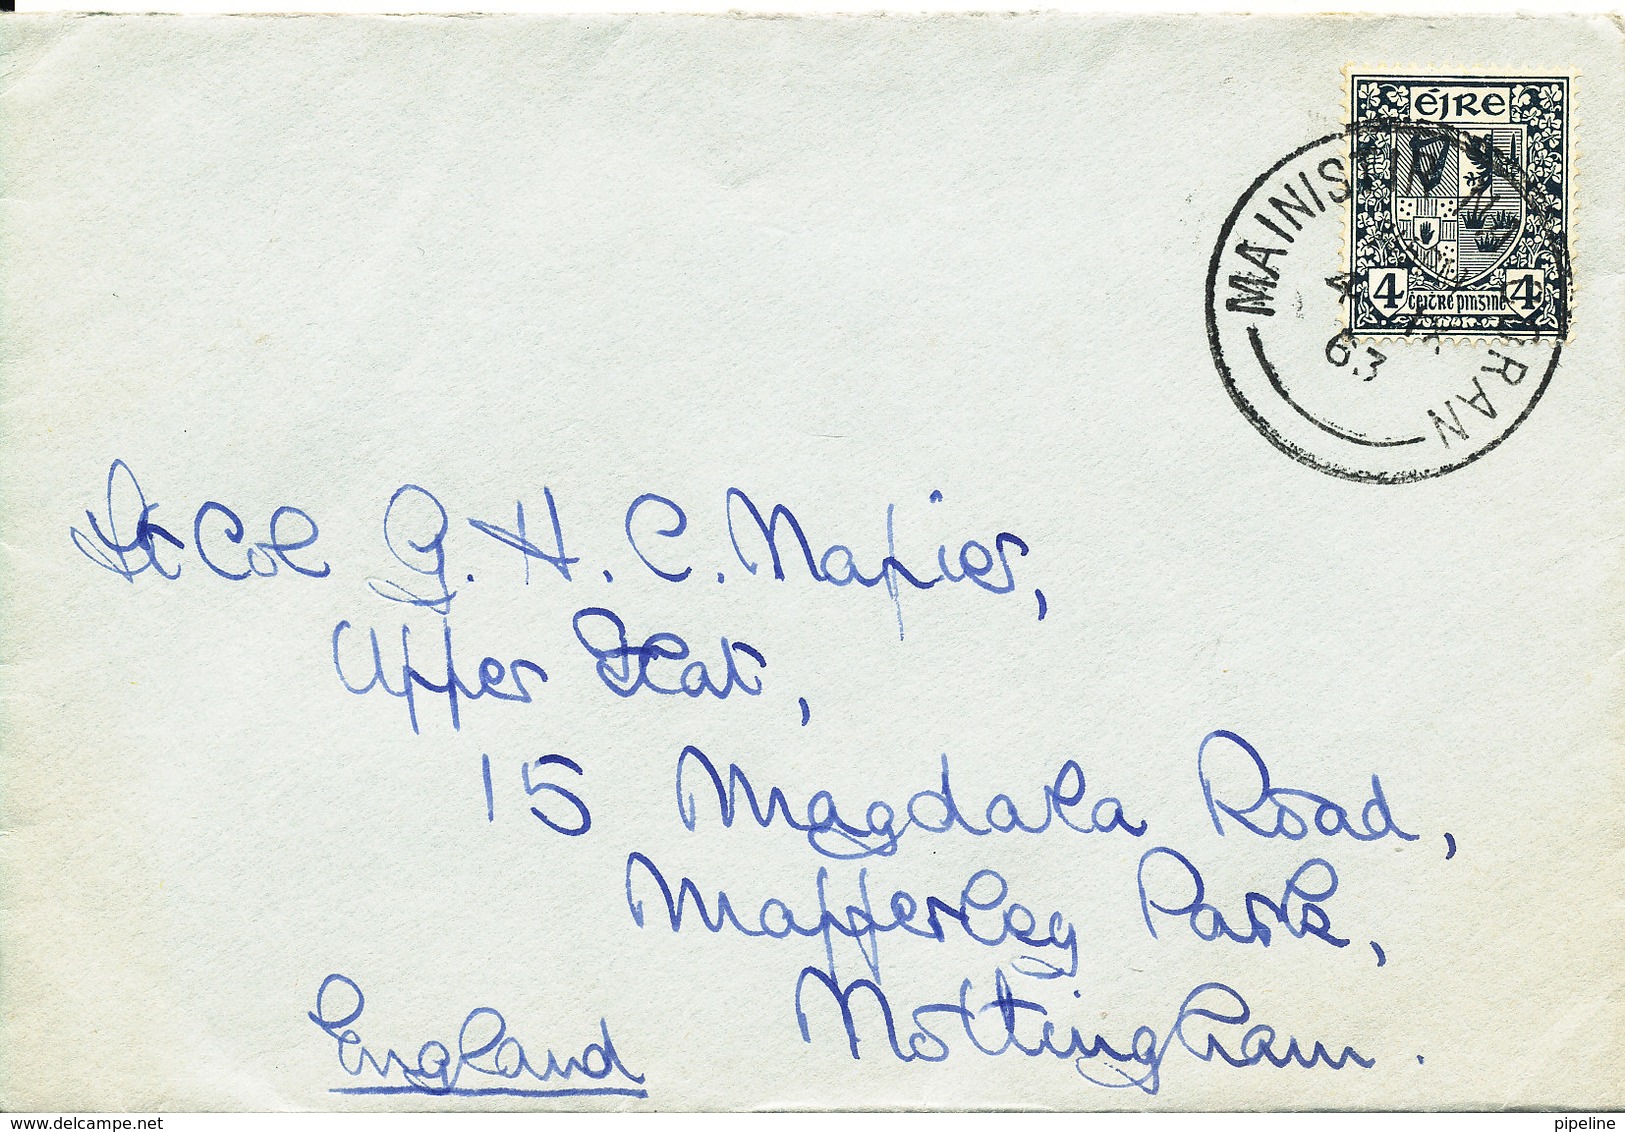 ÉIRE
4 Ceitre pinsine 4
MAINISTIR NA
RAN
63
Lt Col G. H. C. Napier,
Upper Flat,
15 Magdala Road,
Mapperley Park,
Nottingham.
England
pipeline